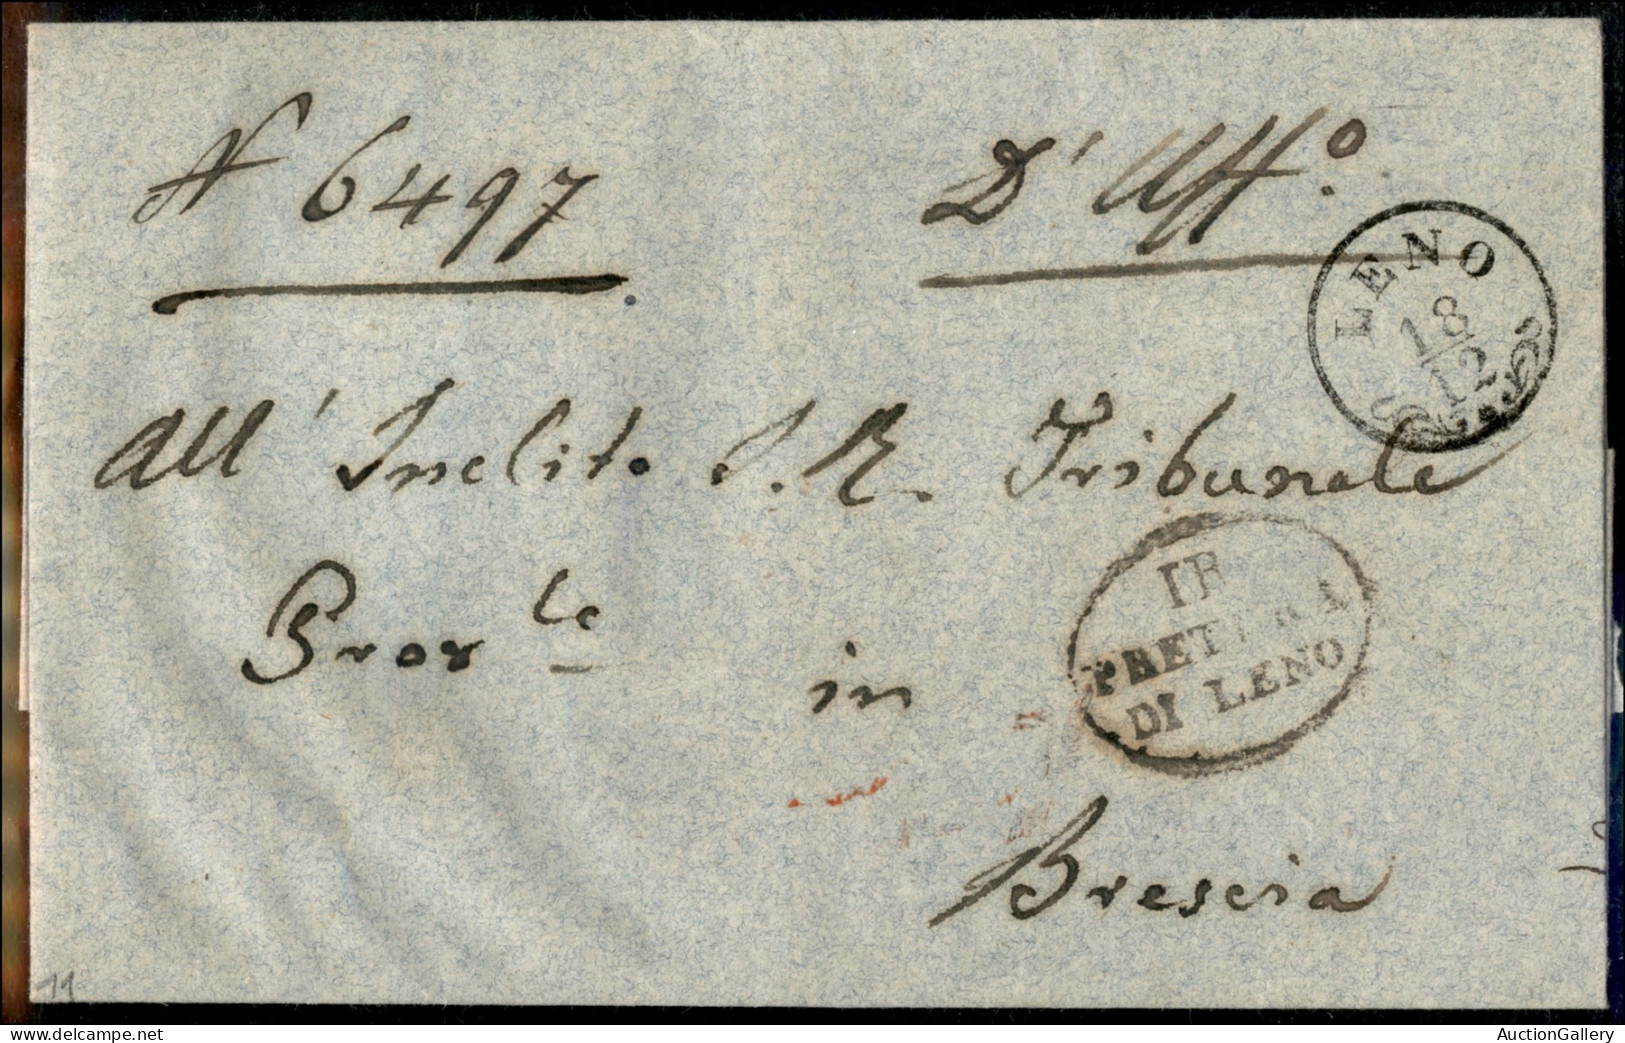 N 6497
D'Uff.º
LENO
18
12
All' Inclito I. R. Tribunale
Prov le
in
IR
PRETURA
DI LENO
Brescia
11
AuctionGallery